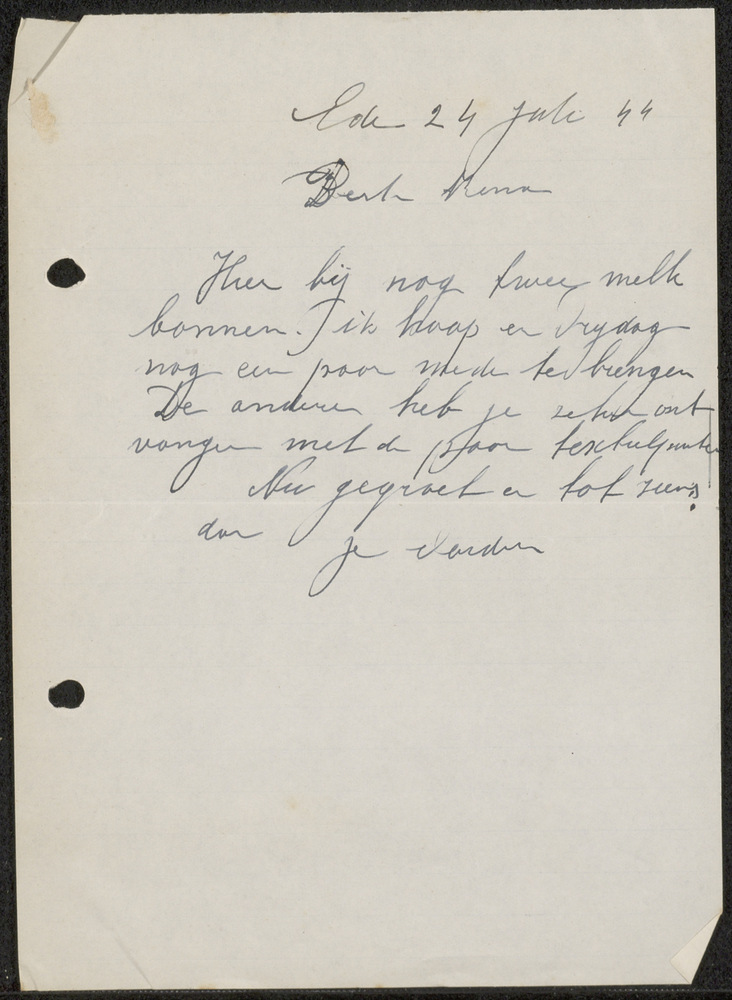 Ede 24 Juli 44
Beste Rena
Hier bij nog twee melk
bonnen. ik hoop er Vrydag
nog een paar mede te brengen
De anderen heb je zeker ont
vangen met de paar textielpunten
Nu gegroet en tot ziens
van
je Vader